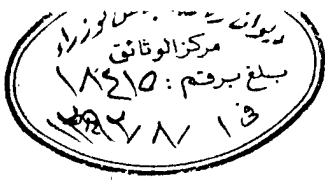 ديوان رئاسة مجلس الوزراء
مركز الوثائق
بلغ برقم : ١٨٤١٥
في ١ / ٨ /